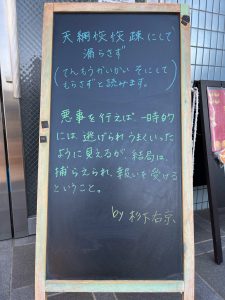 天網恢恢疎にして
漏らさず
(てんもうかいがい そにして
もらさずと読みます。)
悪事を行えば、一時的
には、逃げられうまくいった
ように見えるが、結局は、
捕らえられ、報いを受ける
ということ。
by 杉下右京